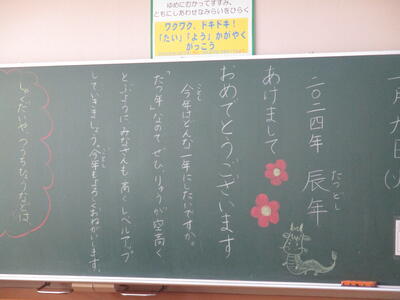 ゆめにむかってすすみ、
ともにしあわせなみらいをひらく
ワクワク、ドキドキ！
「たい」「よう」かがやく
がっこう
一月九日(火
二〇二四年 辰年
たつどし
あけまして
おめでとうございます
今年はどんな一年にしたいですか。
ことし
「たつ年」なので、ぜひ、りゅうが空高く
とぶように、みなさんも、高く、レベルアップ
していきましょう。今年もよろしくおねがいします。
しゅくだいや、つうちひょうなどは、